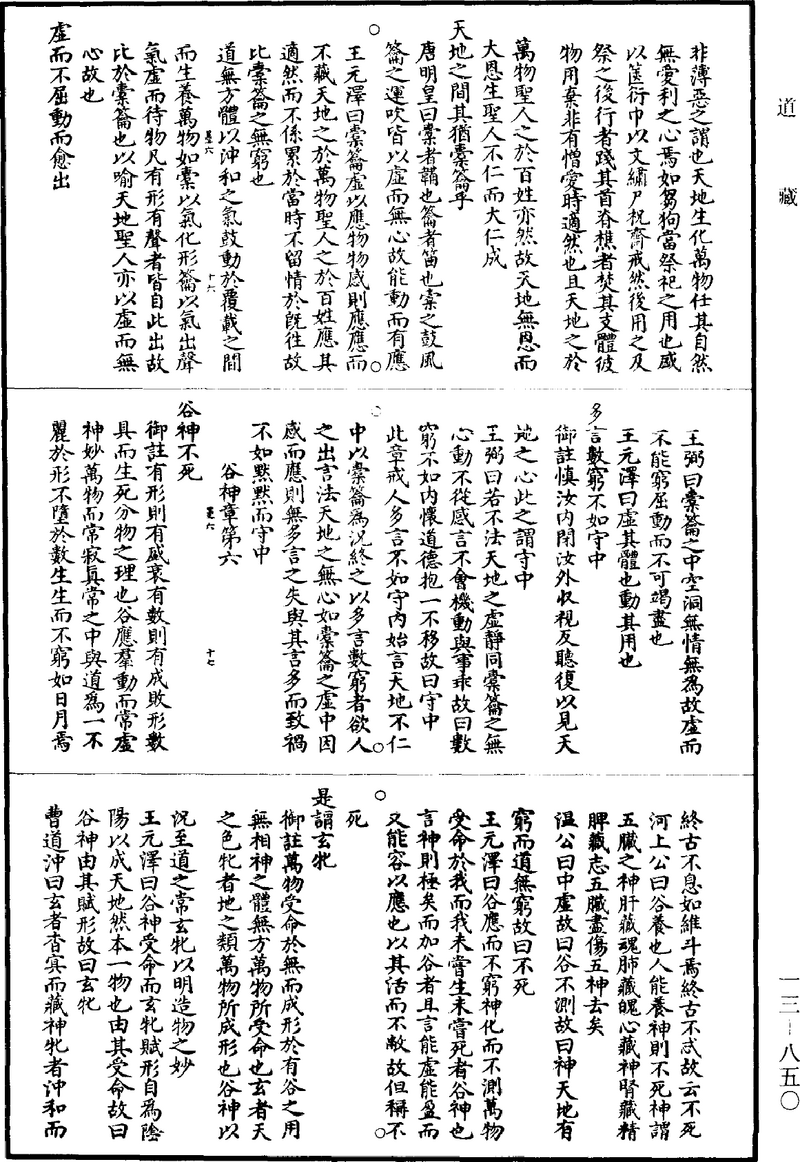 道藏
非薄惡之謂也天地生化萬物任其自然
無愛利之心焉如芻狗當祭祀之用也盛
以篋衍巾以文繡尸祝齋戒然後用之及
祭之後行者踐其首脊樵者焚其支體彼
物用棄非有憎愛時適然也且天地之於
萬物聖人之於百姓亦然故天地無恩而
大恩生聖人不仁而大仁成
天地之間其猶橐籥乎
唐明皇曰橐者鞴也籥者笛也橐之鼓風
籥之運吹皆以虛而無心故能動而有應
王元澤曰橐籥虛以應物物感則應應而
不藏天地之於萬物聖人之於百姓應其
適然而不係累於當時不留情於旣往故
比橐籥之無窮也
道無方體以沖和之氣鼓動於覆載之間
羗六 十六
而生養萬物如橐以氣化形籥以氣出聲
氣虛而待物凡有形有聲者皆自此出故
比於橐籥也以喻天地聖人亦以虛而無
心故也
虛而不屈動而愈出
王弼曰橐籥之中空洞無情無爲故虛而
不能窮屈動而不可竭盡也
王元澤曰虛其體也動其用也
多言數窮不如守中
御註慎汝内閉汝外收視反聽復以見天
地之心此之謂守中
王弼曰若不法天地之虛靜同橐籥之無
心動不從感言不會機動與事乖故曰數
窮不如内懷道德抱一不移故曰守中
此章戒人多言不如守内始言天地不仁
中以橐籥爲況終之以多言數窮者欲人
之出言法天地之無心如橐籥之虛中因
感而應則無多言之失與其言多而致禍
不如默默而守中
谷神章第六
羗六 十七
谷神不死
御註有形則有盛衰有數則有成敗形數
具而生死分物之理也谷應羣動而常虛
神妙萬物而常寂眞常之中與道爲一不
麗於形不墮於數生生而不窮如日月焉
終古不息如維斗焉終古不忒故云不死
河上公曰谷養也人能養神則不死神謂
五臟之神肝藏魂肺藏魄心藏神腎藏精
脾藏志五臟盡傷五神去矣
温公曰中虛故曰谷不測故曰神天地有
窮而道無窮故曰不死
王元澤曰谷應而不窮神化而不測萬物
受命於我而我未嘗生未嘗死者谷神也
言神則極矣而加谷者且言能虛能盈而
又能容以應也以其活而不敝故但稱不
死
是謂玄牝
御註萬物受命於無而成形於有谷之用
無相神之體無方萬物所受命也玄者天
之色牝者地之類萬物所成形也谷神以
況至道之常玄牝以明造物之妙
王元澤曰谷神受命而玄牝賦形自爲陰
陽以成天地然本一物也由其受命故曰
谷神由其賦形故曰玄牝
曹道沖曰玄者杳冥而藏神牝者沖和而
一三—八五〇